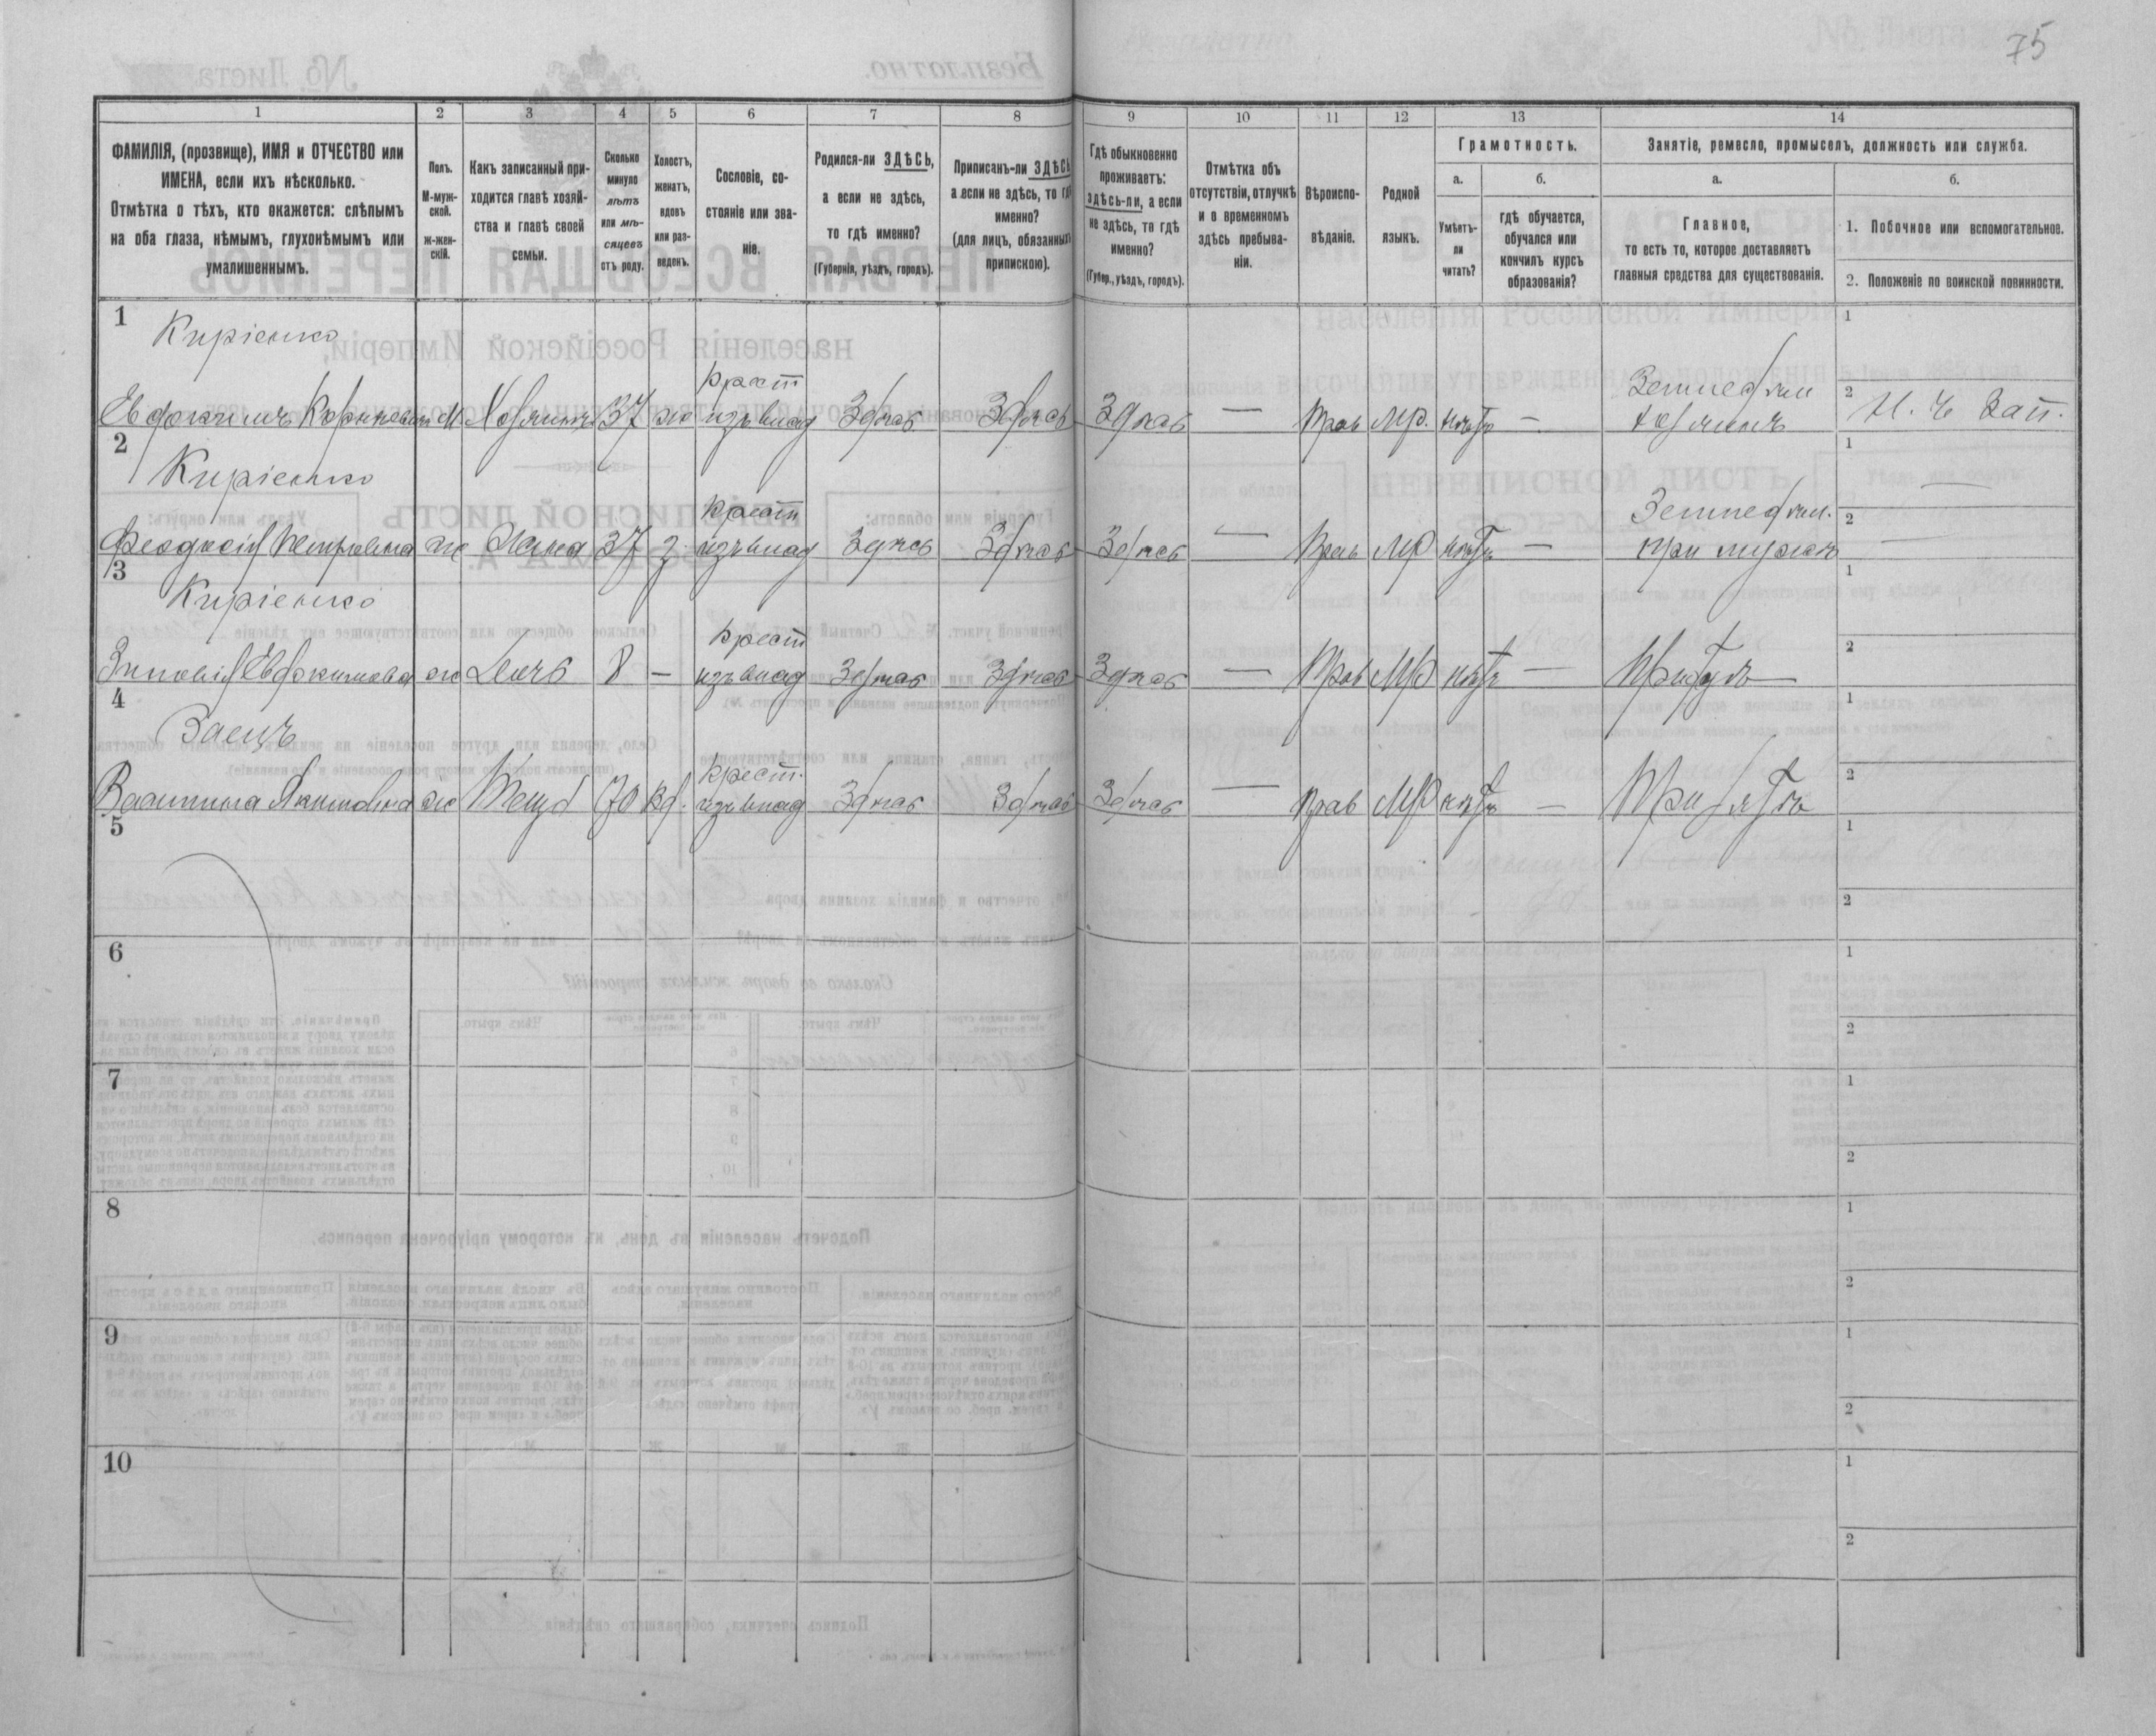 75
1 2 3 4 5 6 7 8 9 10 11 12 13 14
ФАМИЛІЯ, (прозвище), ИМЯ и ОТЧЕСТВО или
ИМЕНА, если ихъ нѣсколько.
Отмѣтка о тѣхъ, кто окажется: слѣпымъ
на оба глаза, нѣмымъ, глухонѣмымъ или
умалишеннымъ.
Полъ.
М-муж-
ской.
ж-жен-
скій.
Какъ записанный при-
ходится главѣ хозяй-
ства и главѣ своей
семьи.
Сколько
минуло
лѣтъ
или мѣ-
сяцевъ
отъ роду.
Холостъ,
женатъ,
вдовъ
или раз-
веденъ.
Сословіе, со-
стояніе или зва-
ніе.
Родился-ли ЗДѢСЬ,
а если не здѣсь,
то гдѣ именно?
(Губернія, уѣздъ, городъ).
Приписанъ-ли ЗДѢСЬ
а если не здѣсь, то гдѣ
именно?
(для лицъ, обязанныхъ
припискою).
Гдѣ обыкновенно
проживаетъ:
здѣсь-ли, а если
не здѣсь, то гдѣ
именно?
(Губер., уѣздъ, городъ).
Отмѣтка объ
отсутствіи, отлучкѣ
и о временномъ
здѣсь пребыва-
ніи.
Вѣроиспо-
вѣданіе.
Родной
языкъ.
Грамотность.
а.
Умѣетъ-
ли
читать?
б.
гдѣ обучается,
обучался или
кончилъ курсъ
образованія?
Занятіе, ремесло, промыселъ, должность или служба.
а.
Главное,
то есть то, которое доставляетъ
главныя средства для существованія.
б.
1. Побочное или вспомогательное.
2. Положеніе по воинской повинности.
1 Киріенко 1
крест Земледѣл 2
Евдокимъ М Хозяинъ 37 ж изъ влад Здѣсь Здѣсь Здѣсь — Прав МР. нѣтъ — хозяинъ Н. Ч Зап.
2 Киріенко 1
крест Земледѣл. 2
Феодосія Петровна ж Жена 37 з изъ влад Здѣсь Здѣсь Здѣсь — Прав МР нѣтъ — при мужѣ —
3 Киріенко 1
крест 2
Зиновія Евдокимова ж Дочь 8 — изъ влад Здѣсь Здѣсь Здѣсь — Прав МР нѣтъ — При отцѣ
4 Заецъ 1
крест. 2
Акимовна ж Теща 70 вд. изъ влад Здѣсь Здѣсь Здѣсь — Прав МР нѣтъ — При зятѣ
5 1
2
6 1
2
7 1
2
8 1
2
9 1
2
10 1
2